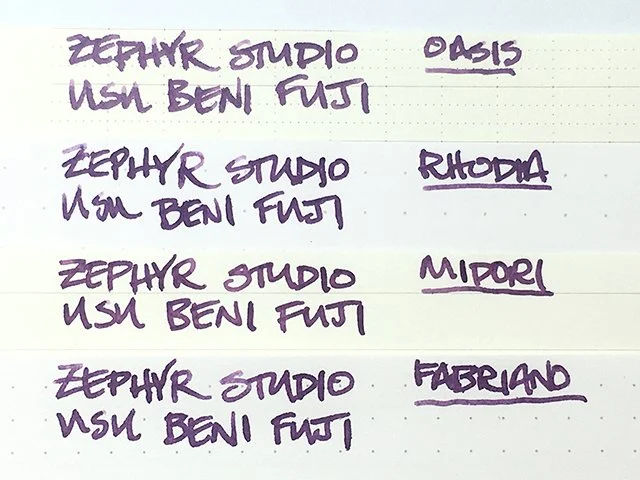 ZEPHYR STUDIO OASIS
USU BENI FUJI
ZEPHYR STUDIO RHODIA
USU BENI FUJI
ZEPHYR STUDIO MIDORI
USU BENI FUJI
ZEPHYR STUDIO FABRIANO
USU BENI FUJI